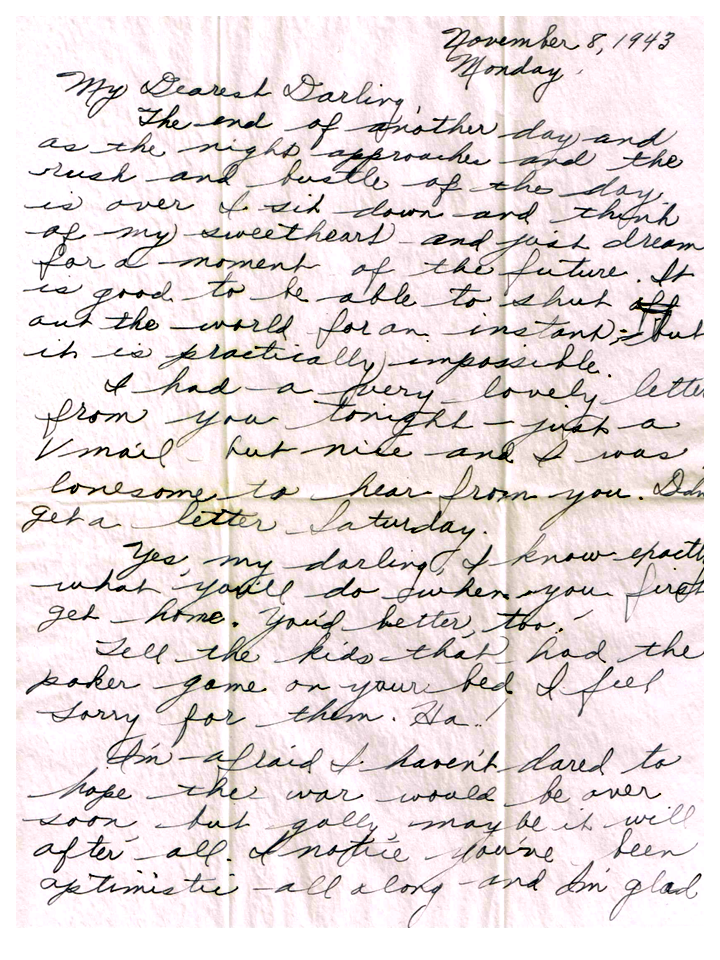 November 8, 1943
Monday.
My Dearest Darling,
The end of another day and
as the night approaches and the
rush and bustle of the day
is over I sit down and think
of my sweetheart and just dream
for a moment of the future. It
is good to be able to shut off
out the world for an instant, but
it is practically impossible.
I had a very lovely letter
from you tonight - just a
Vmail - but nice and I was
lonesome to hear from you. Didn
get a letter Saturday.
Yes, my darling, I know exactly
what you'll do when you first
get home. You'd better, too!
Tell the kids that had the
poker game on your bed I feel
sorry for them. Ha!
I'm afraid I haven't dared to
hope the war would be over
soon, but golly, maybe it will
after all. I notice you've been
optimistic all along and I'm glad